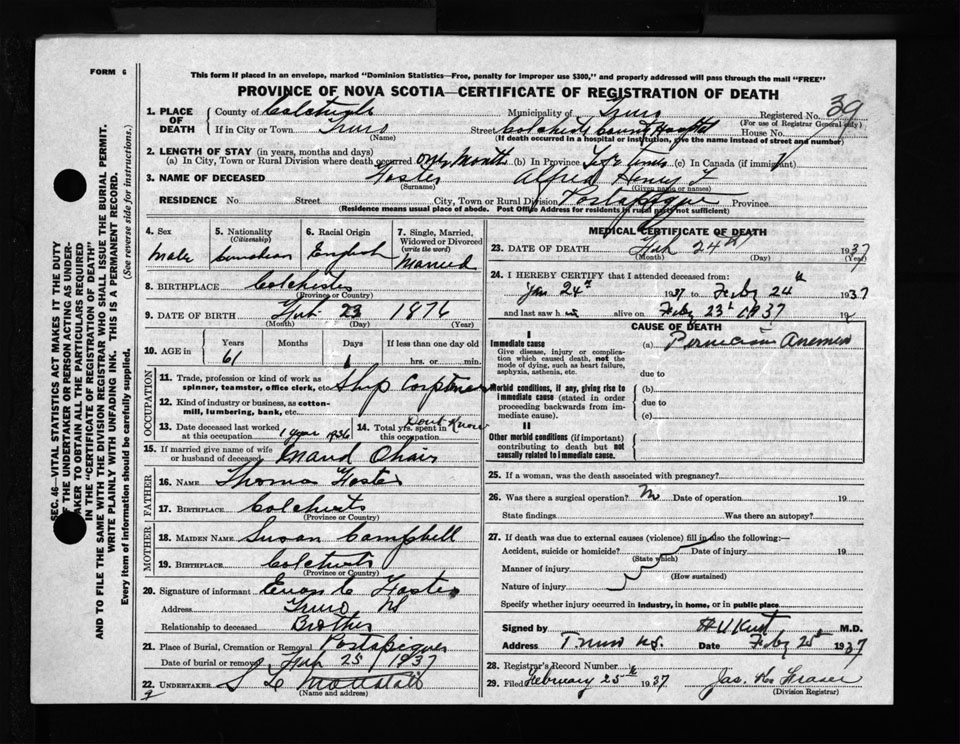 FORM 6
This form if placed in an envelope, marked "Dominion Statistics—Free, penalty for improper use $300," and properly addressed will pass through the mail "FREE"
PROVINCE OF NOVA SCOTIA—CERTIFICATE OF REGISTRATION OF DEATH
39
1. PLACE OF DEATH County of Colchester Municipality of Truro Registered No.
(For use of Registrar General only)
If in City or Town Truro Street Colchester County Hospital House No.
(Name) (If death occurred in a hospital or institution, give the name instead of street and number)
2. LENGTH OF STAY (in years, months and days)
(a) In City, Town or Rural Division where death occurred One Month (b) In Province Life time (c) In Canada (if immigrant)
3. NAME OF DECEASED Foster Alfred Henry
(Surname) (Given name or names)
RESIDENCE No. Street City, Town or Rural Division Portapique Province
(Residence means usual place of abode. Post Office Address for residents in rural parts not sufficient)
4. Sex Male
5. Nationality (Citizenship) Canadian
6. Racial Origin English
7. Single, Married, Widowed or Divorced (write the word) Married
8. BIRTHPLACE Colchester
(Province or Country)
9. DATE OF BIRTH Feb 23 1876
(Month) (Day) (Year)
10. AGE in Years 61 Months Days 1 If less than one day old hrs. or min.
OCCUPATION
11. Trade, profession or kind of work as spinner, teamster, office clerk, etc. Ship Carpenter
12. Kind of industry or business, as cotton-mill, lumbering, bank, etc.
13. Date deceased last worked at this occupation 1 year 1936
14. Total yrs. spent in this occupation Dont Know
15. If married give name of wife or husband of deceased
FATHER
16. Name Thomas Foster
17. Birthplace Colchester
(Province or Country)
MOTHER
18. Maiden Name Susan Campbell
19. Birthplace Colchester
(Province or Country)
20. Signature of informant Foster
Address Truro NS
Relationship to deceased Brother
21. Place of Burial, Cremation or Removal Portapique
Date of burial or removal Feb 25 1937
22. UNDERTAKER
(Name and address)
MEDICAL CERTIFICATE OF DEATH
23. DATE OF DEATH Feb 24th 1937
(Month) (Day) (Year)
24. I HEREBY CERTIFY that I attended deceased from:
Jan 24th 1937 to Feby 24th 1937
and last saw h im alive on Feby 23d 1937 19
CAUSE OF DEATH
I
Immediate cause (a) Pernicious Anemia
Give disease, injury or complication which caused death, not the mode of dying, such as heart failure, asphyxia, asthenia, etc.
due to
Morbid conditions, if any, giving rise to immediate cause (stated in order proceeding backwards from immediate cause).
(b)
due to
(c)
II
Other morbid conditions (if important) contributing to death but not causally related to immediate cause.
25. If a woman, was the death associated with pregnancy?
26. Was there a surgical operation? No Date of operation 19
State findings Was there an autopsy?
27. If death was due to external causes (violence) fill in also the following:—
Accident, suicide or homicide? Date of injury 19
(State which)
Manner of injury
(How sustained)
Nature of injury
Specify whether injury occurred in industry, in home, or in public place
Signed by M.D.
Address Truro N.S. Date Feby 25th 1937
28. Registrar's Record Number
29. Filed February 25th 1937 Jas. Fraser
(Division Registrar)
SEC. 46—VITAL STATISTICS ACT MAKES IT THE DUTY
OF THE UNDERTAKER OR PERSON ACTING AS UNDERTAKER TO OBTAIN ALL THE PARTICULARS REQUIRED
IN THE "CERTIFICATE OF REGISTRATION OF DEATH"
AND TO FILE THE SAME WITH THE DIVISION REGISTRAR WHO SHALL ISSUE THE BURIAL PERMIT.
WRITE PLAINLY WITH UNFADING INK. THIS IS A PERMANENT RECORD.
Every item of information should be carefully supplied. (See reverse side for instructions.)